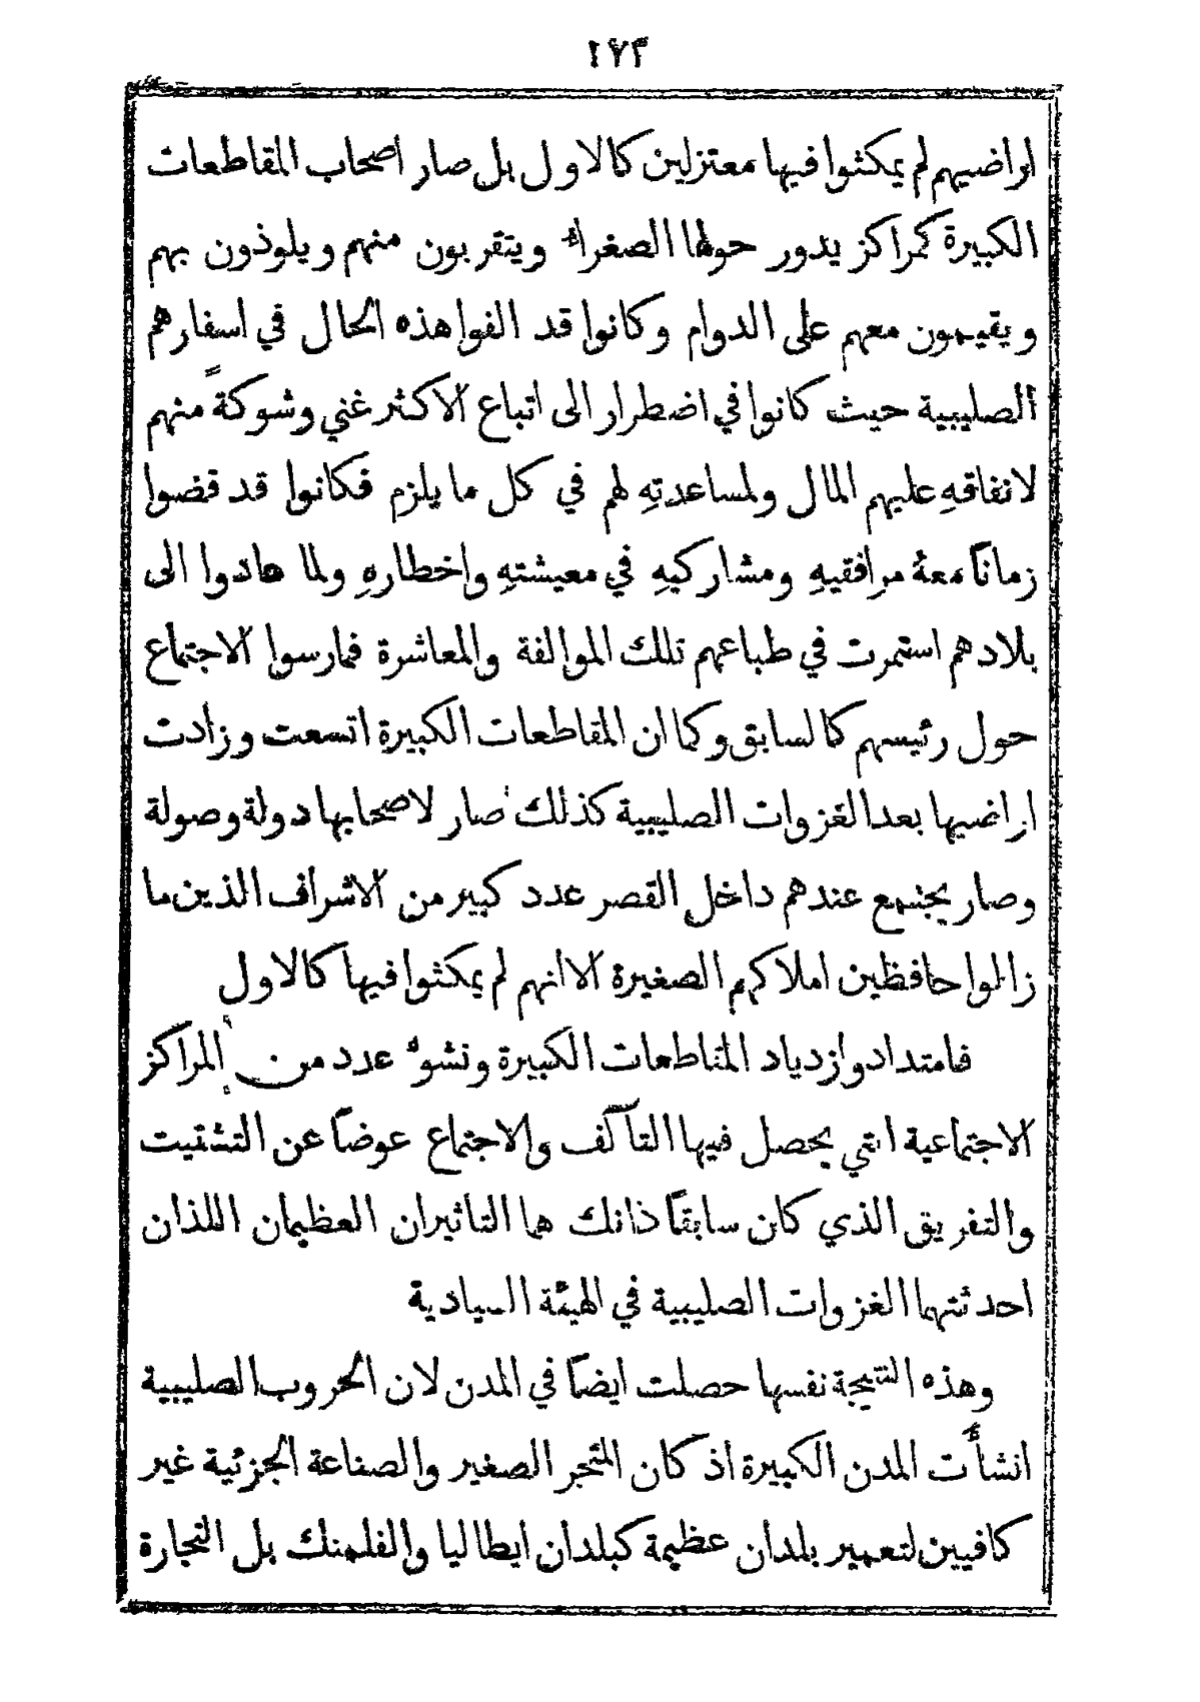 ١٧٣
اراضيهم لم يمكثوا فيها معتزلين كالاول بل صار اصحاب المقاطعات
الكبيرة كمراكز يدور حولها الصغراء ويتقربون منهم ويلوذون بهم
ويقيمون معهم على الدوام وكانوا قد الفوا هذه الحال في اسفارهم
الصليبية حيث كانوا في اضطرار الى اتباع الاكثر غني وشوكةً منهم
لانفاقهِ عليهم المال ولمساعدتهِ لهم في كل ما يلزم فكانوا قد قضوا
زمانًا معهُ مرافقيهِ ومشاركيهِ في معيشتهِ واخطارهِ ولما عادوا الى
بلادهم استمرت في طباعهم تلك الموالفة والمعاشرة فمارسوا الاجتماع
حول رئيسهم كالسابق وكما ان المقاطعات الكبيرة اتسعت وزادت
اراضيها بعد الغزوات الصليبية كذلك صار لاصحابها دولة وصولة
وصار يجتمع عندهم داخل القصر عدد كبير من الاشراف الذين ما
زالوا حافظين املاكهم الصغيرة الا انهم لم يمكثوا فيها كالاول
فامتداد وازدياد المقاطعات الكبيرة ونشوء عدد من المراكز
الاجتماعية التي يحصل فيها التآلف والاجتماع عوضًا عن التشتيت
والتفريق الذي كان سابقًا ذانك هما التاثيران العظيمان اللذان
احدثتهما الغزوات الصليبية في الهيئة السيادية
وهذه النتيجة نفسها حصلت ايضًا في المدن لان الحروب الصليبية
انشأَت المدن الكبيرة اذ كان المتجر الصغير والصناعة الجزئية غير
كافيين لتعمير بلدان عظيمة كبلدان ايطاليا والفلمنك بل التجارة